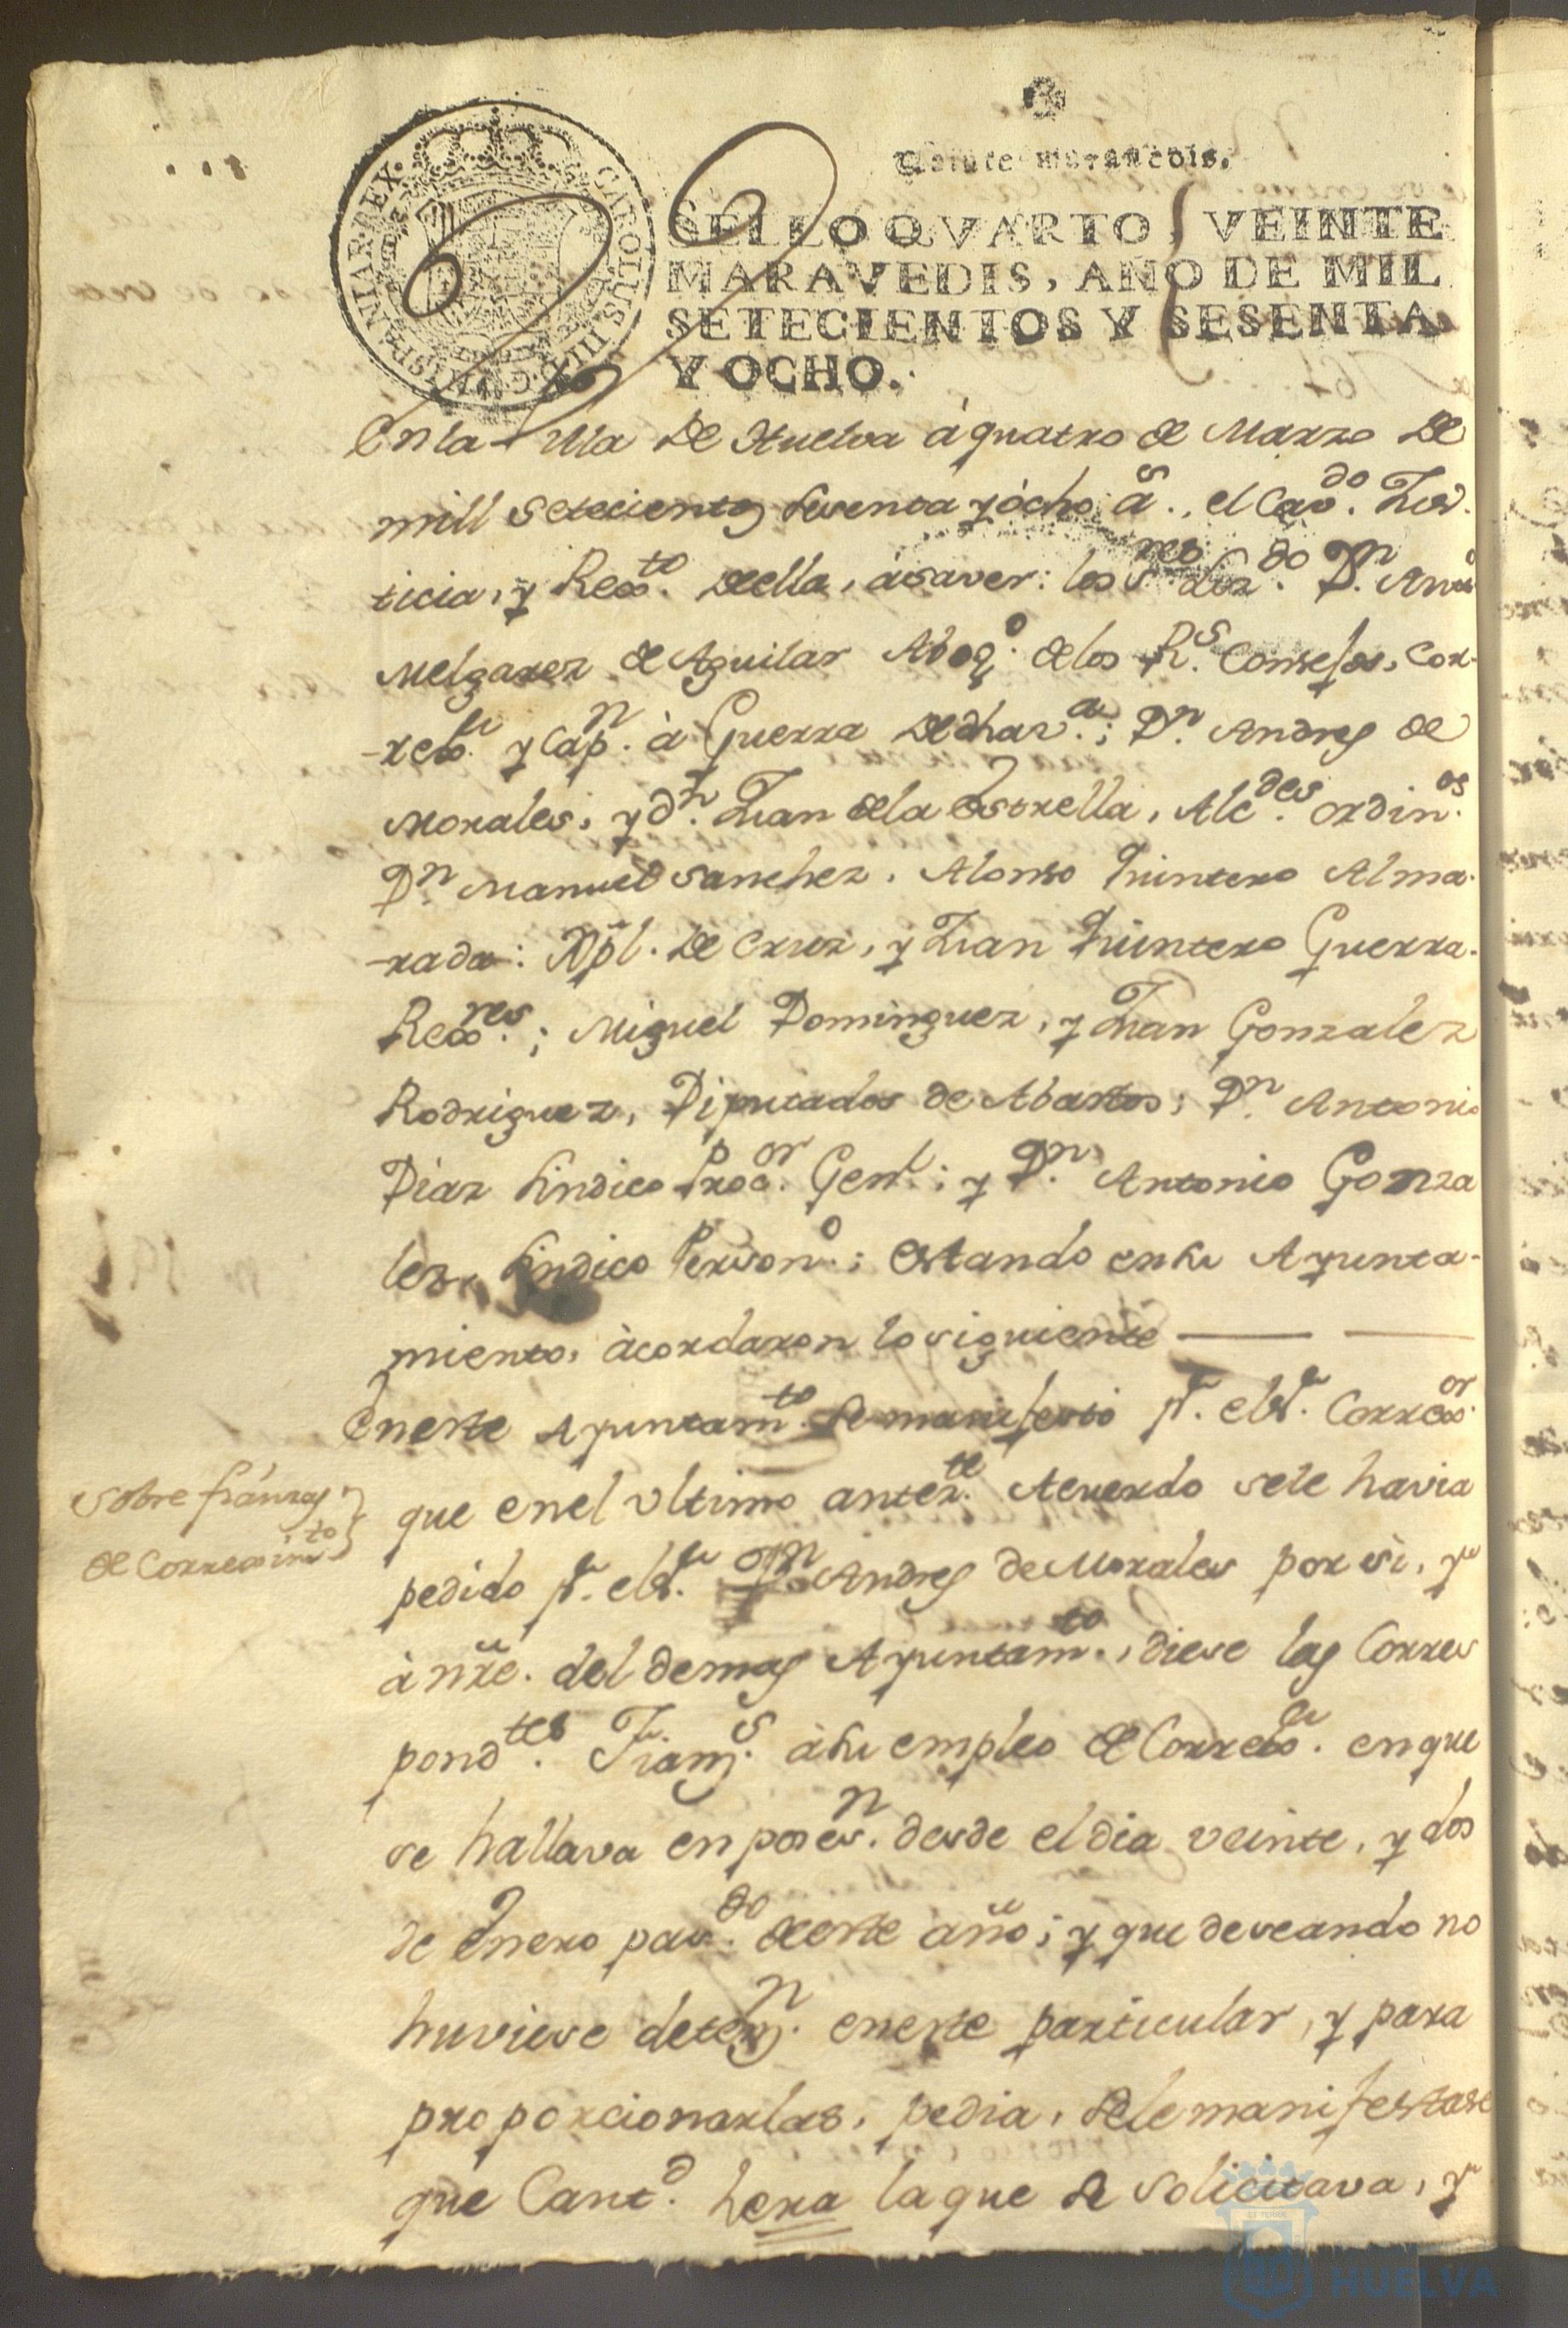 Veinte maravedis.
SELLO QVARTO, VEINTE
MARAVEDIS, AÑO DE MIL
SETECIENTOS Y SESENTA
Y OCHO.
CAROLUS III D. G. HISPANIAR. REX.
En la Villa de Huelva à quatro de Marzo de
mill setecientos sesenta y ôcho a.s, el Cav.do Jus-
ticia, y Reg.to de ella, à saver: los S.res Liz.do D.n Ant.o
Melgarez de Aguilar Abog.o de los R.s Consejos, Cor-
-reg.r y Cap.n à Guerra de dha v.a; D.n Andres de
Morales, y d.n Juan de la Estrella, Alc.des ordin.os
D.n Manuel Sanchez, Alonso Quintero Alma-
-rada: Xptl. de Cruz, y Juan Quintero Guerra
Reg.res; Miguel Dominguez, y Juan Gonzalez
Rodriguez, Diputados de Abastos; D.n Antonio
Diaz Sindico Proc.or Gen.l; y D.n Antonio Gonza
lez, Sindico Person.o; Estando en su Ayunta-
miento, àcordaron lo siguiente
Sobre fianzas
de Corregim.to
En este Ayuntam.to se manifestó p.r el S.r Correg.or
que en el ultimo anter.te Acuerdo se le havia
pedido p.r el S.r D.n Andres de Morales por si, y
à nre. del demas Ayuntam.to, diese las Corres
pond.tes Fianz.s à su empleo de Correg.r en que
se hallava en poses.n desde el dia veinte, y dos
de Enero pas.do de este año; y que deseando no
huviese deten.n en este particular, y para
proporcionarlas, pedia, se le manifestase
que Cant.d hera la que se solicitava, y
HUELVA